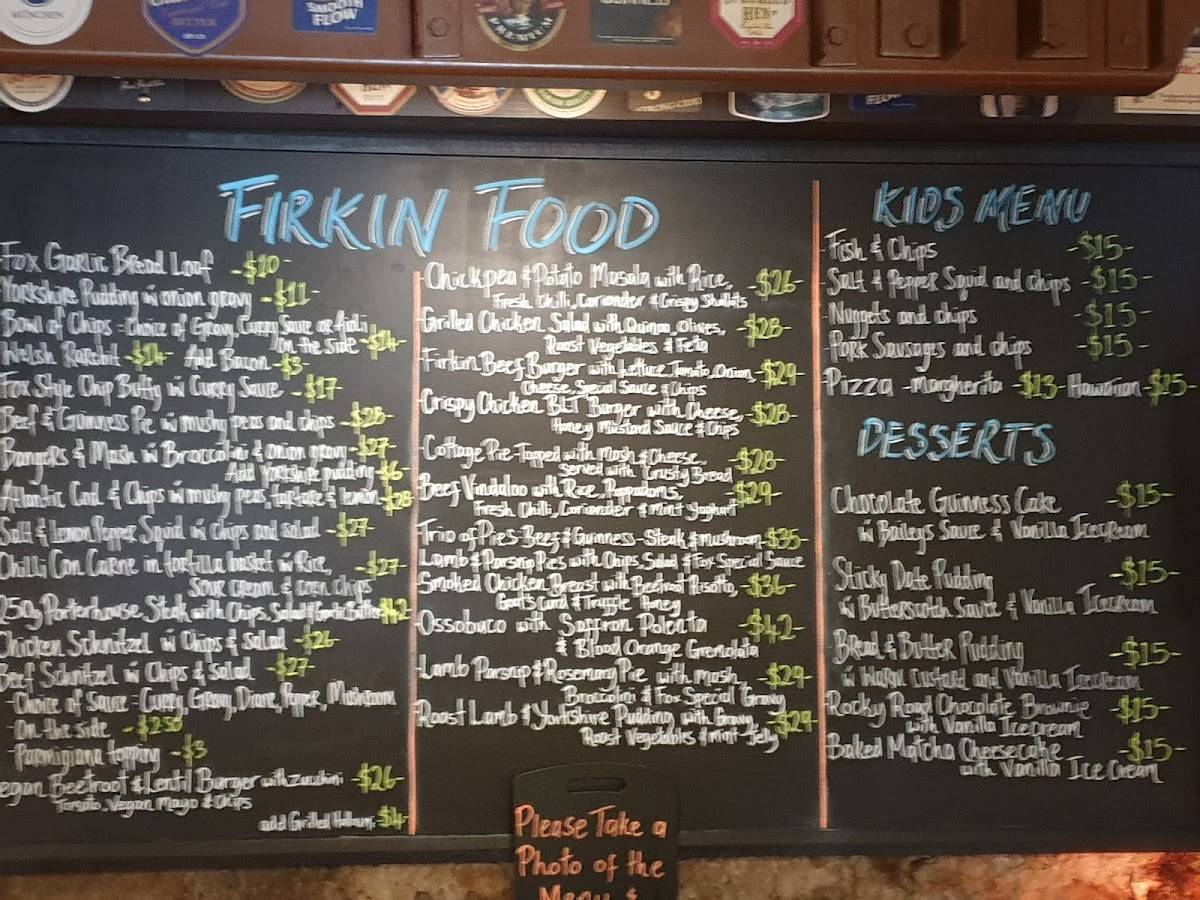 MÜNCHEN
BITTER
SMOOTH
FLOW
PREMIUM
STRONG CIDER
FLOW
FIRKIN FOOD
Fox Garlic Bread Loaf -$10-
Yorkshire Pudding w onion gravy -$11-
Bowl of Chips - Choice of Gravy, Curry Sauce or Aioli
on the side -$14-
Welsh Rarebit -$14- Add Bacon -$3-
Fox Style Chip Butty w Curry Sauce -$17-
Beef & Guinness Pie w mushy peas and chips -$28-
Bangers & Mash w Broccolini & onion gravy -$27-
Add Yorkshire pudding -$6-
Atlantic Cod & Chips w mushy peas, tartare & lemon -$28-
Salt & Lemon Pepper Squid w chips and salad -$27-
Chilli Con Carne in tortilla basket w Rice, -$27-
Sour cream & corn chips
250g Porterhouse Steak with Chips, Salad & Garlic Butter
Chicken Schnitzel w Chips & Salad -$26-
Beef Schnitzel w Chips & Salad -$27-
-Choice of Sauce - Curry, Gravy, Diane, Pepper, Mushroom
On the side -$2.50-
-Parmigiana topping -$3
egan Beetroot & Lentil Burger with Zucchini -$26-
Tomato, Vegan Mayo & Chips
add Grilled Halloumi -$4-
Chickpea & Potato Masala with Rice, -$26-
Fresh Chilli, Coriander & Crispy Shallots
Grilled Chicken Salad with Quinoa, Olives, -$28-
Roast Vegetables & Feta
Firkin Beef Burger with Lettuce, Tomato, Onion, -$29-
Cheese, Special Sauce & Chips
Crispy Chicken BLT Burger with Cheese, -$28-
Honey Mustard Sauce & Chips
Cottage Pie - Topped with Mash & Cheese, -$28-
Served with Crusty Bread
Beef Vindaloo with Rice, Pappadoms, -$29-
Fresh Chilli, Coriander & Mint Yoghurt
Trio of Pies - Beef & Guinness - Steak & Mushroom -$35-
Lamb & Parsnip Pies with Chips, Salad & Fox Special Sauce
Smoked Chicken Breast with Beetroot Risotto, -$36-
Goats Curd & Truffle Honey
Ossobuco with Saffron Polenta -$42-
& Blood Orange Gremolata
Lamb Parsnip & Rosemary Pie with Mash, -$29-
Broccolini & Fox Special Gravy
Roast Lamb & Yorkshire Pudding with Gravy, -$29-
Roast Vegetables & Mint Jelly
KIDS MENU
Fish & Chips -$15-
Salt & Pepper Squid and chips -$15-
Nuggets and chips -$15-
Pork Sausages and chips -$15-
Pizza -Margherita -$13- Hawaiian -$15-
DESSERTS
Chocolate Guinness Cake -$15-
w Baileys Sauce & Vanilla Icecream
Sticky Date Pudding -$15-
w Butterscotch Sauce & Vanilla Icecream
Bread & Butter Pudding -$15-
w Warm Custard and Vanilla Icecream
Rocky Road Chocolate Brownie -$15-
with Vanilla Icecream
Baked Matcha Cheesecake -$15-
with Vanilla Ice Cream
Please Take a
Photo of the
Menu &